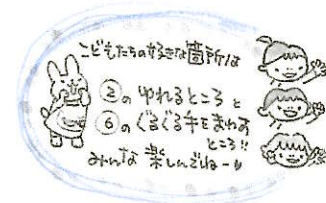 こどもたちの好きな箇所は
②の ゆれるところ と
⑥の ぐるぐる手をまわす
ところ!!
みんな 楽しんでねー!!